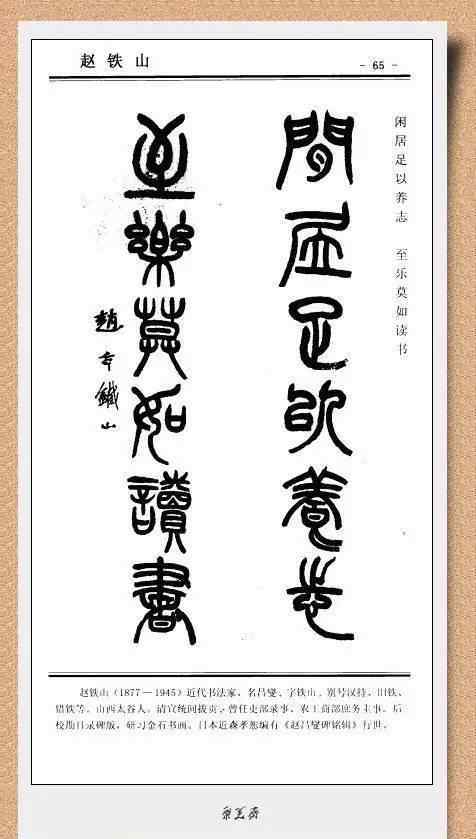 赵铁山
- 65 -
闲居足以养志 至乐莫如读书
閒居足以養志
至樂莫如讀書
趙鐵山
赵铁山（1877—1945）近代书法家，名昌燮、字铁山，别号汉持、旧铁、
惜铁等。山西太谷人。清宣统间拔贡，曾任吏部录事、农工商部庶务主事。后
校勘目录碑版，研习金石书画。日本近森孝悊编有《赵昌燮碑铭辑》行世。